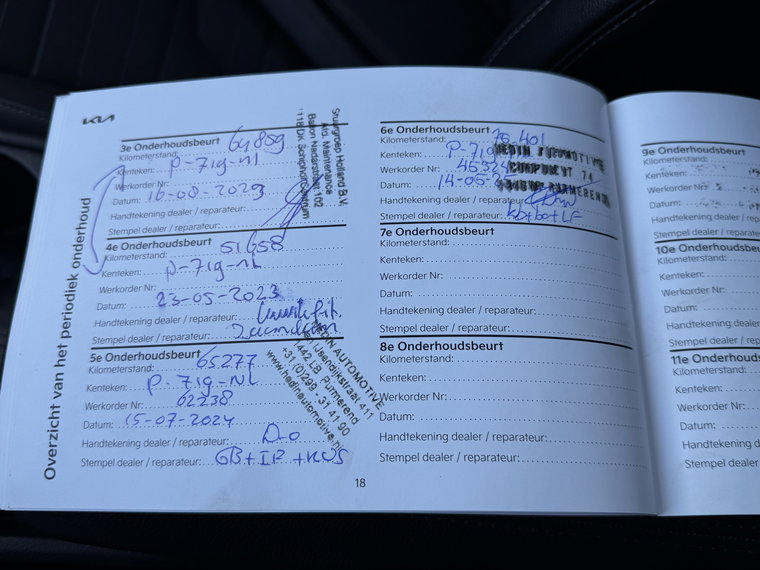 KIA
Overzicht van het periodiek onderhoud
3e Onderhoudsbeurt
Kilometerstand: 64859
Kenteken: P-719-nl
Werkorder Nr:
Datum: 16-08-2023
Handtekening dealer / reparateur:
Stempel dealer / reparateur:
Studygroep Holland B.V.
Afd. Maintenance
1118DK Schiphol Centrum
4e Onderhoudsbeurt
Kilometerstand: 51658
Kenteken: P-719-NL
Werkorder Nr:
Datum: 23-05-2023
Handtekening dealer / reparateur:
Stempel dealer / reparateur:
5e Onderhoudsbeurt
Kilometerstand: 65277
Kenteken: P-719-NL
Werkorder Nr: 62238
Datum: 15-07-2024
Handtekening dealer / reparateur:
Stempel dealer / reparateur: GB+IF+
HEDIN AUTOMOTIVE
411
1442 LB Purmerend
+31 (0)299 - 31 41 90
www.hedinautomotive.nl
18
6e Onderhoudsbeurt
Kilometerstand: 75.401
Kenteken: P-719
Werkorder Nr:
Datum: 14-05-25
Handtekening dealer / reparateur:
Stempel dealer / reparateur:
HEDIN AUTOMOTIVE
COMPONENT 74
PURMEREND
7e Onderhoudsbeurt
Kilometerstand:
Kenteken:
Werkorder Nr:
Datum:
Handtekening dealer / reparateur:
Stempel dealer / reparateur:
8e Onderhoudsbeurt
Kilometerstand:
Kenteken:
Werkorder Nr:
Datum:
Handtekening dealer / reparateur:
Stempel dealer / reparateur:
9e Onderhoudsbeurt
Kilometerstand:
Kenteken:
Werkorder Nr:
Datum:
Handtekening dealer
Stempel dealer / re
10e Onderhoudsbe
Kilometerstand:
Kenteken:
Werkorder Nr:
Datum:
Handtekening dealer
Stempel dealer / re
11e Onderhouds
Kilometerstand:
Kenteken:
Werkorder Nr:
Datum:
Handtekening dea
Stempel dealer